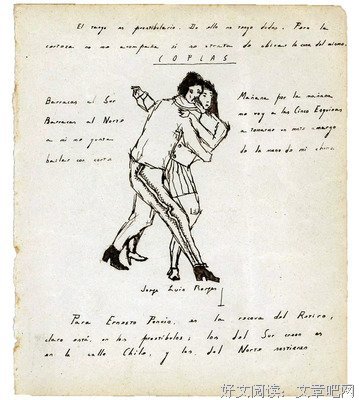 El tango es prostibulario. De ello no tengo dudas. Pero la
no me acompaña si de ubicar la cuna del mismo.
COPLAS
Barracas al Sur
Barracas al Norte
a mi me gusta
bailar con corte
Mañana por la mañana
me voy a las Cinco Esquinas
a tomar un mate amargo
de la mano de mi china
Jorge Luis Borges
Para Ernesto Poncio, es la del Retiro,
claro está, en los prostíbulos; los del Sur creen
en la calle Chile, y los del Norte sostienen
好文阅读：文章吧网